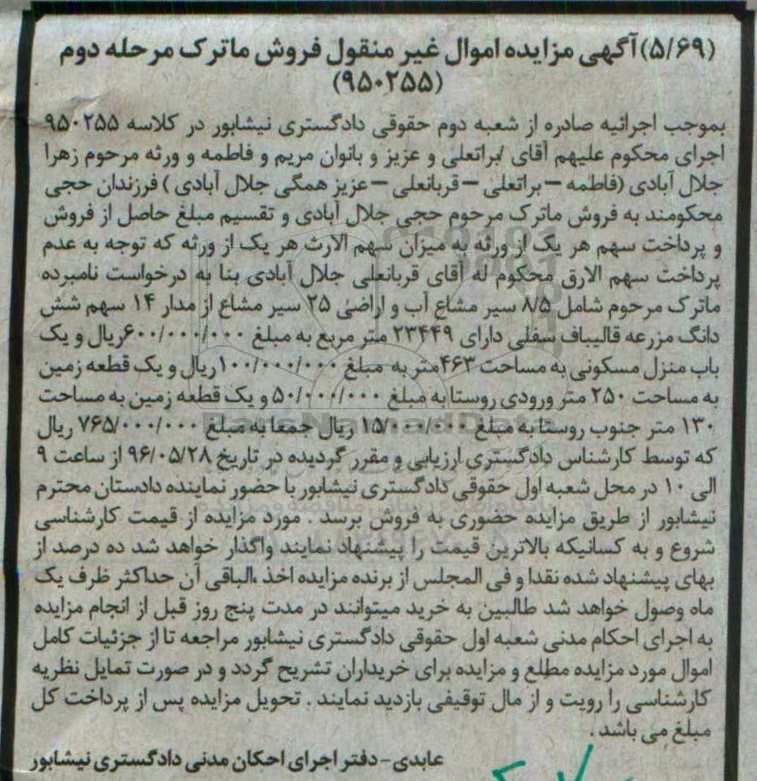 (۵/۶۹) آگهی مزایده اموال غیر منقول فروش ماترک مرحله دوم
(۹۵۰۲۵۵)
بموجب اجرائیه صادره از شعبه دوم حقوقی دادگستری نیشابور در کلاسه ۹۵۰۲۵۵
اجرای محکوم علیهم آقای /براتعلی و عزیز و بانوان مریم و فاطمه و ورثه مرحوم زهرا
جلال آبادی (فاطمه – براتعلی – قربانعلی – عزیز همگی جلال آبادی) فرزندان حجی
محکومند به فروش ماترک مرحوم حجی جلال آبادی و تقسیم مبلغ حاصل از فروش
و پرداخت سهم هر یک از ورثه به میزان سهم الارث هر یک از ورثه که توجه به عدم
پرداخت سهم الارق محکوم له آقای قربانعلی جلال آبادی بنا به درخواست نامبرده
ماترک مرحوم شامل ۸/۵ سیر مشاع آب و اراضی ۲۵ سیر مشاع از مدار ۱۴ سهم شش
دانگ مزرعه قالیباف سفلی دارای ۲۳۴۴۹ متر مربع به مبلغ ۶۰۰/۰۰۰/۰۰۰ریال و یک
باب منزل مسکونی به مساحت ۴۶۳متر به مبلغ ۱۰۰/۰۰۰/۰۰۰ ریال و یک قطعه زمین
به مساحت ۲۵۰ متر ورودی روستا به مبلغ ۵۰/۰۰۰/۰۰۰ و یک قطعه زمین به مساحت
۱۳۰ متر جنوب روستا به مبلغ ۱۵/۰۰۰/۰۰۰ ریال جمعا به مبلغ ۷۶۵/۰۰۰/۰۰۰ ریال
که توسط کارشناس دادگستری ارزیابی و مقرر گردیده در تاریخ ۹۶/۰۵/۲۸ از ساعت ۹
الی ۱۰ در محل شعبه اول حقوقی دادگستری نیشابور با حضور نماینده دادستان محترم
نیشابور از طریق مزایده حضوری به فروش برسد . مورد مزایده از قیمت کارشناسی
شروع و به کسانیکه بالاترین قیمت را پیشنهاد نمایند واگذار خواهد شد ده درصد از
بهای پیشنهاد شده نقدا و فی المجلس از برنده مزایده اخذ ،الباقی آن حداکثر ظرف یک
ماه وصول خواهد شد طالبین به خرید میتوانند در مدت پنج روز قبل از انجام مزایده
به اجرای احکام مدنی شعبه اول حقوقی دادگستری نیشابور مراجعه تا از جزئیات کامل
اموال مورد مزایده مطلع و مزایده برای خریداران تشریح گردد و در صورت تمایل نظریه
کارشناسی را رویت و از مال توقیفی بازدید نمایند . تحویل مزایده پس از پرداخت کل
مبلغ می باشد .
عابدی - دفتر اجرای احکان مدنی دادگستری نیشابور
ParsNamadData